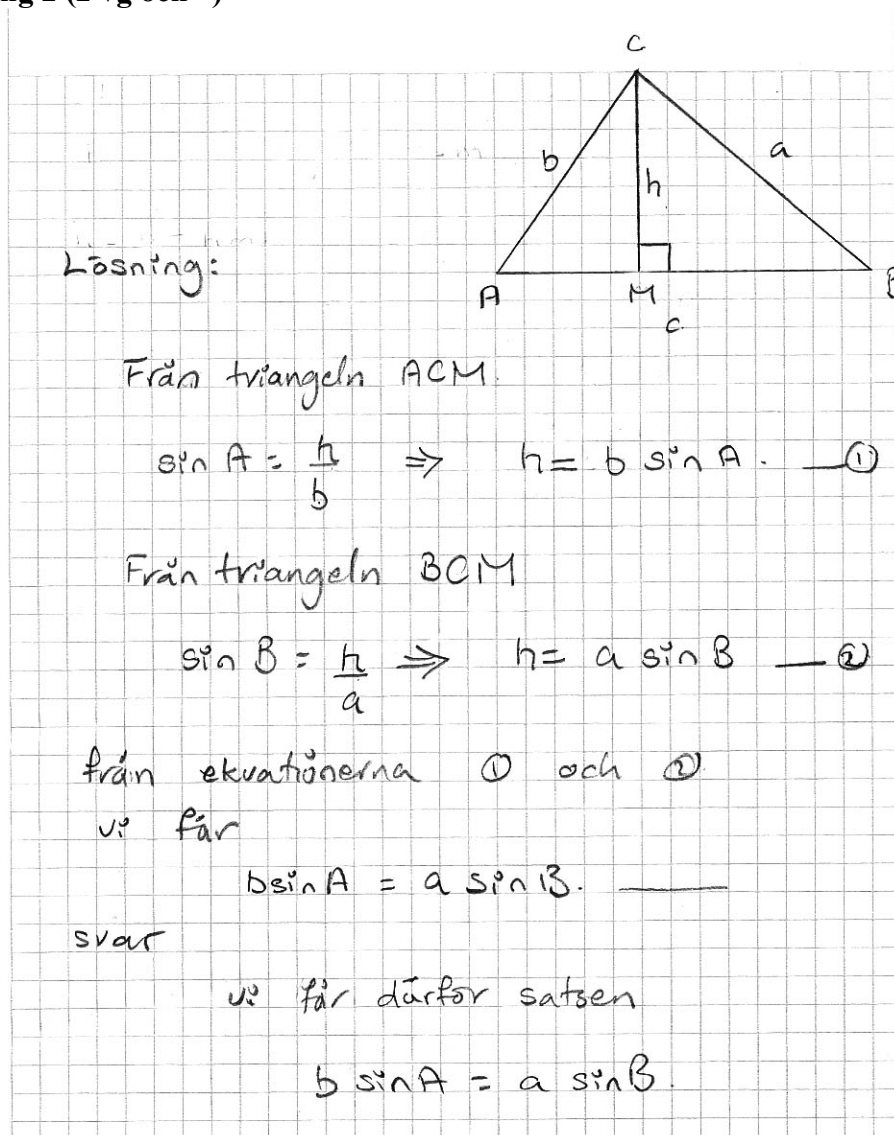 C
b
a
h
Lösning:
A
M
c
Från triangeln ACM.
sin A = h/b ⇒ h = b sin A. — ①
Från triangeln BCM
sin B = h/a ⇒ h = a sin B — ②
från ekvationerna ① och ②
vi får
b sin A = a sin B. —
svar
vi får därför satsen
b sin A = a sin B.